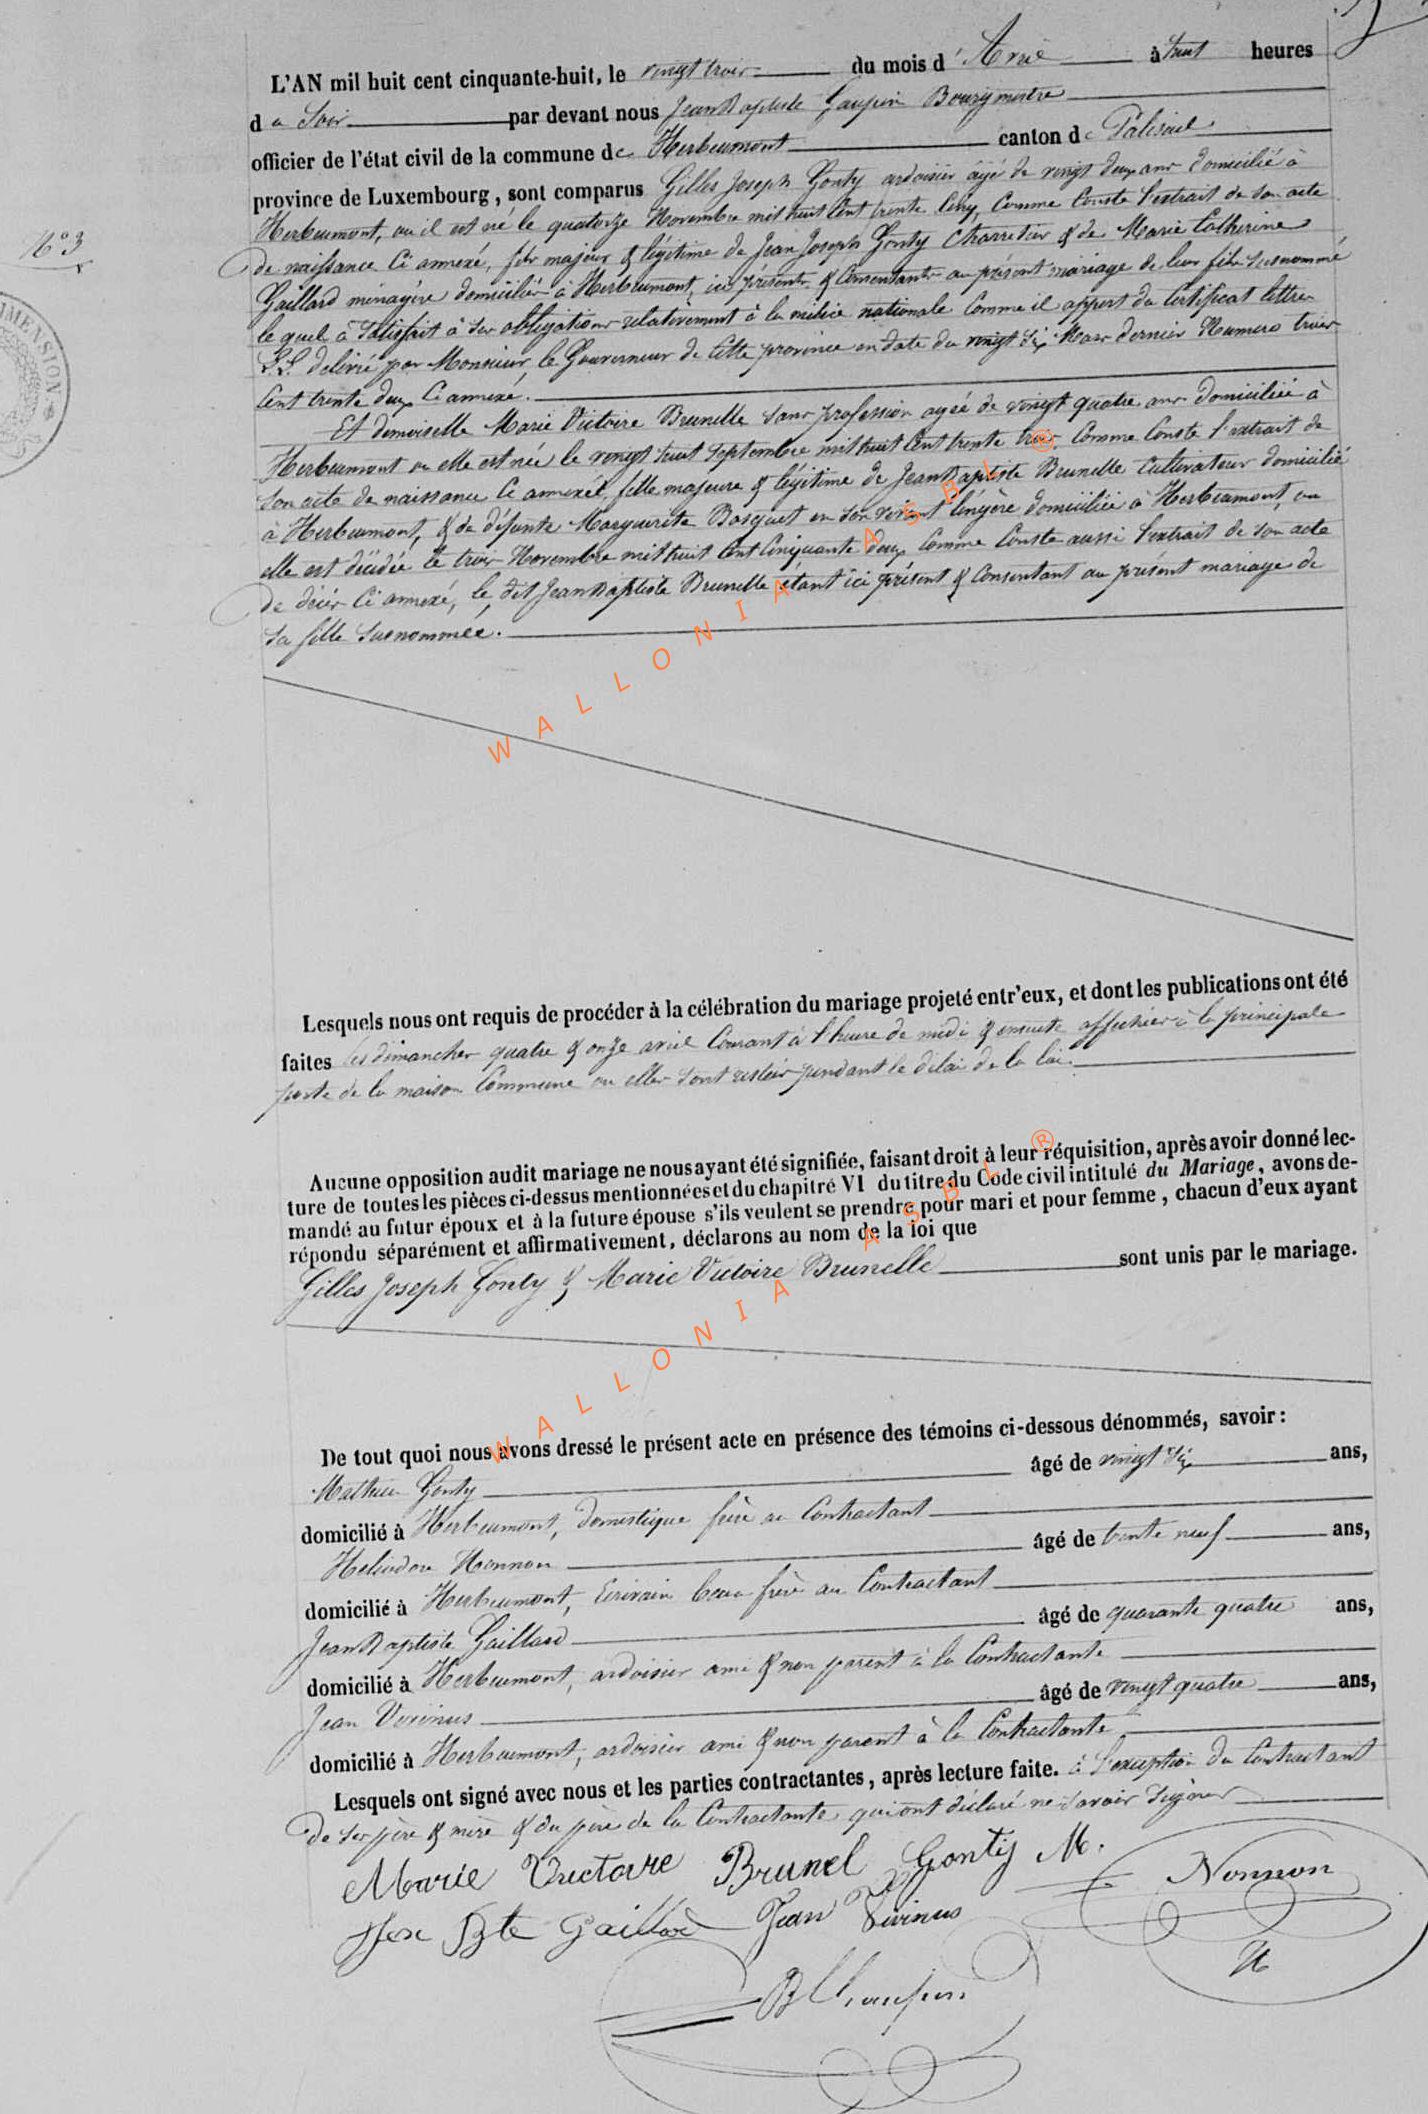 N° 3
L'AN mil huit cent cinquante-huit, le vingt trois du mois d'Avril à huit heures
du Soir par devant nous Jean Baptiste Bourgmestre
officier de l'état civil de la commune de Herbeumont canton de Paliseul
province de Luxembourg, sont comparus Gilles Joseph Gonty ardoisier âgé de vingt deux ans domicilié à
Herbeumont, ou il est né le quatorze Novembre mil huit Cent trente Cinq, Comme Conste l'extrait de son acte
de naissance Ci annexé, fils majeur & légitime de Jean Joseph Gonty Charretier & de Marie Catherine
Gaillard ménagère domiciliés à Herbeumont, ici présents & Consentants au présent mariage de leur fils susnommé
le quel à satisfait à ses obligations relativement à la milice nationale Comme il appert du Certificat lettres
L.L. délivré par Monsieur le Gouverneur de Cette province en date du vingt six Mars dernier Numero trois
Cent trente deux Ci annexé.
Et demoiselle Marie Victoire Brunelle sans profession agée de vingt quatre ans domiciliée à
Herbeumont ou elle est née le vingt huit Septembre mil huit Cent trente trois Comme Conste l'extrait de
son acte de naissance Ci annexée, fille majeure & légitime de Jean Baptiste Brunelle Cultivateur domicilié
à Herbeumont, & de défunte Marguerite Bosquet en son vivant lingère domiciliée à Herbeumont, ou
elle est décédée le trois Novembre mil huit Cent Cinquante deux Comme Conste aussi l'extrait de son acte
de décès Ci annexé, le dit Jean Baptiste Brunelle étant ici présent & Consentant au présent mariage de
sa fille susnommée.
Lesquels nous ont requis de procéder à la célébration du mariage projeté entr'eux, et dont les publications ont été
faites les dimanches quatre & onze avril Courant à l'heure de midi & ensuite affichées à la principale
porte de la maison Commune ou elles sont restées pendant le délai de la loi.
Aucune opposition audit mariage ne nous ayant été signifiée, faisant droit à leur réquisition, après avoir donné lec-
ture de toutes les pièces ci-dessus mentionnées et du chapitré VI du titre du Code civil intitulé du Mariage, avons de-
mandé au futur époux et à la future épouse s'ils veulent se prendre pour mari et pour femme, chacun d'eux ayant
répondu séparément et affirmativement, déclarons au nom de la loi que
Gilles Joseph Gonty & Marie Victoire Brunelle sont unis par le mariage.
De tout quoi nous avons dressé le présent acte en présence des témoins ci-dessous dénommés, savoir :
Mathieu Gonty âgé de vingt six ans,
domicilié à Herbeumont, domestique frère au Contractant
Heliodore Nonnon âgé de trente neuf ans,
domicilié à Herbeumont, Ecrivain beau frère au Contractant
Jean Baptiste Gaillard âgé de quarante quatre ans,
domicilié à Herbeumont, ardoisier ami & non parent à la Contractante
Jean Vivinus âgé de vingt quatre ans,
domicilié à Herbeumont, ardoisier ami & non parent à la Contractante
Lesquels ont signé avec nous et les parties contractantes, après lecture faite. à l'exception du Contractant
de ses père & mère & du père de la Contractante qui ont déclaré ne savoir signer
Marie Victoire Brunel Gonty M. Nonnon
Jean Bte Gaillard Jean Vivinus
H
WALLONIA ASBL ®
WALLONIA ASBL ®